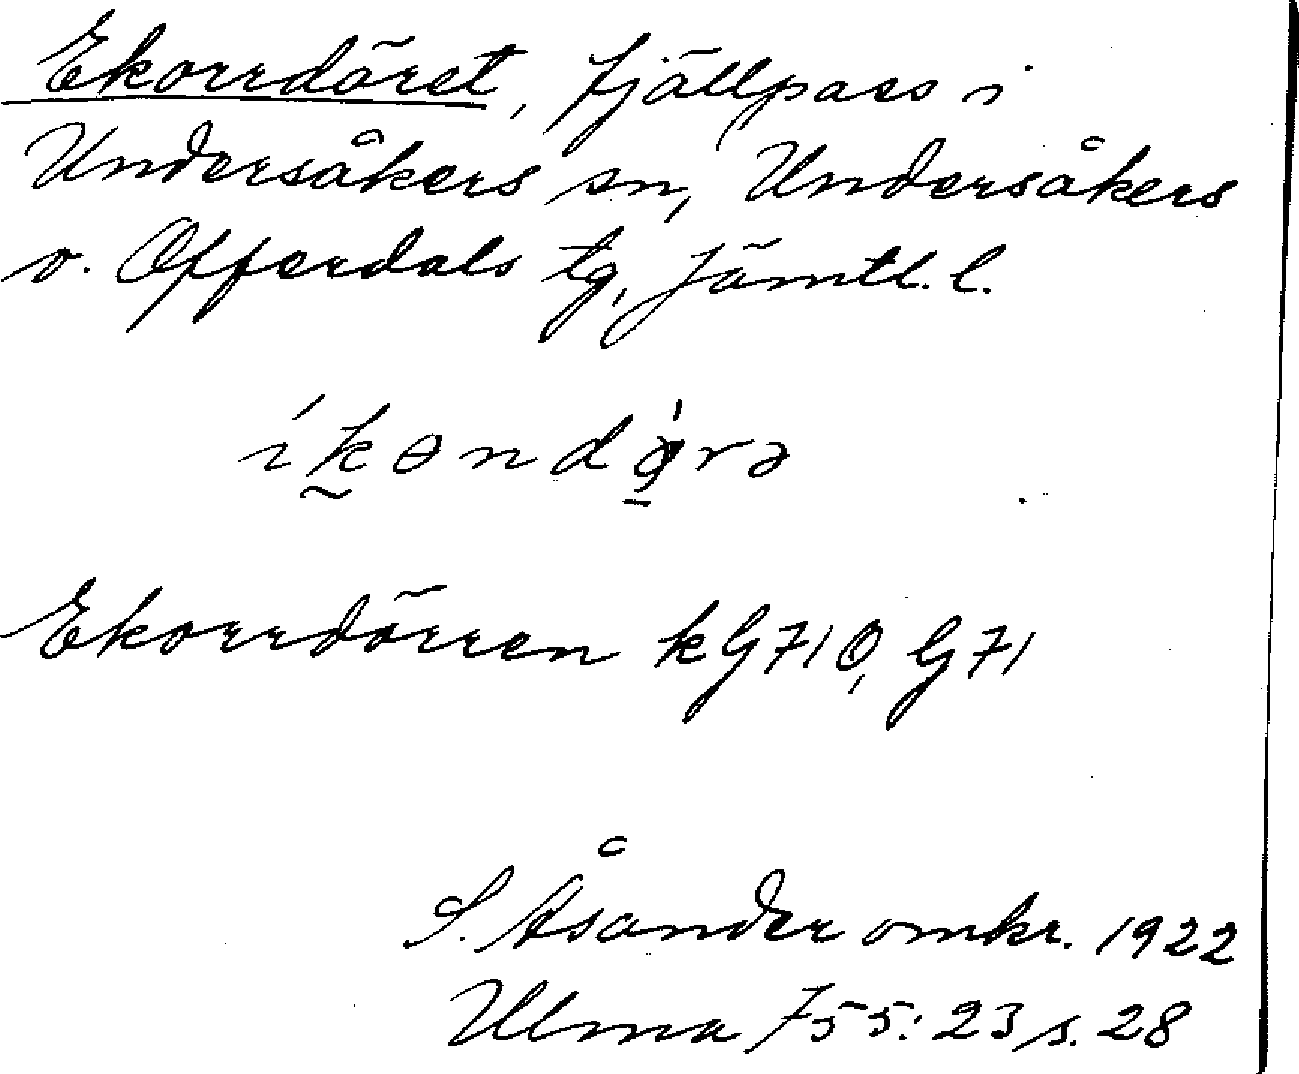 Ekorrdöret, fjällpass i
Undersåkers sn, Undersåkers
o. Offerdals tg, Jämtl. l.
Ekorrdörren kG71Ö, G71
S. Åsander omkr. 1922
Ulma 755:23 s. 28